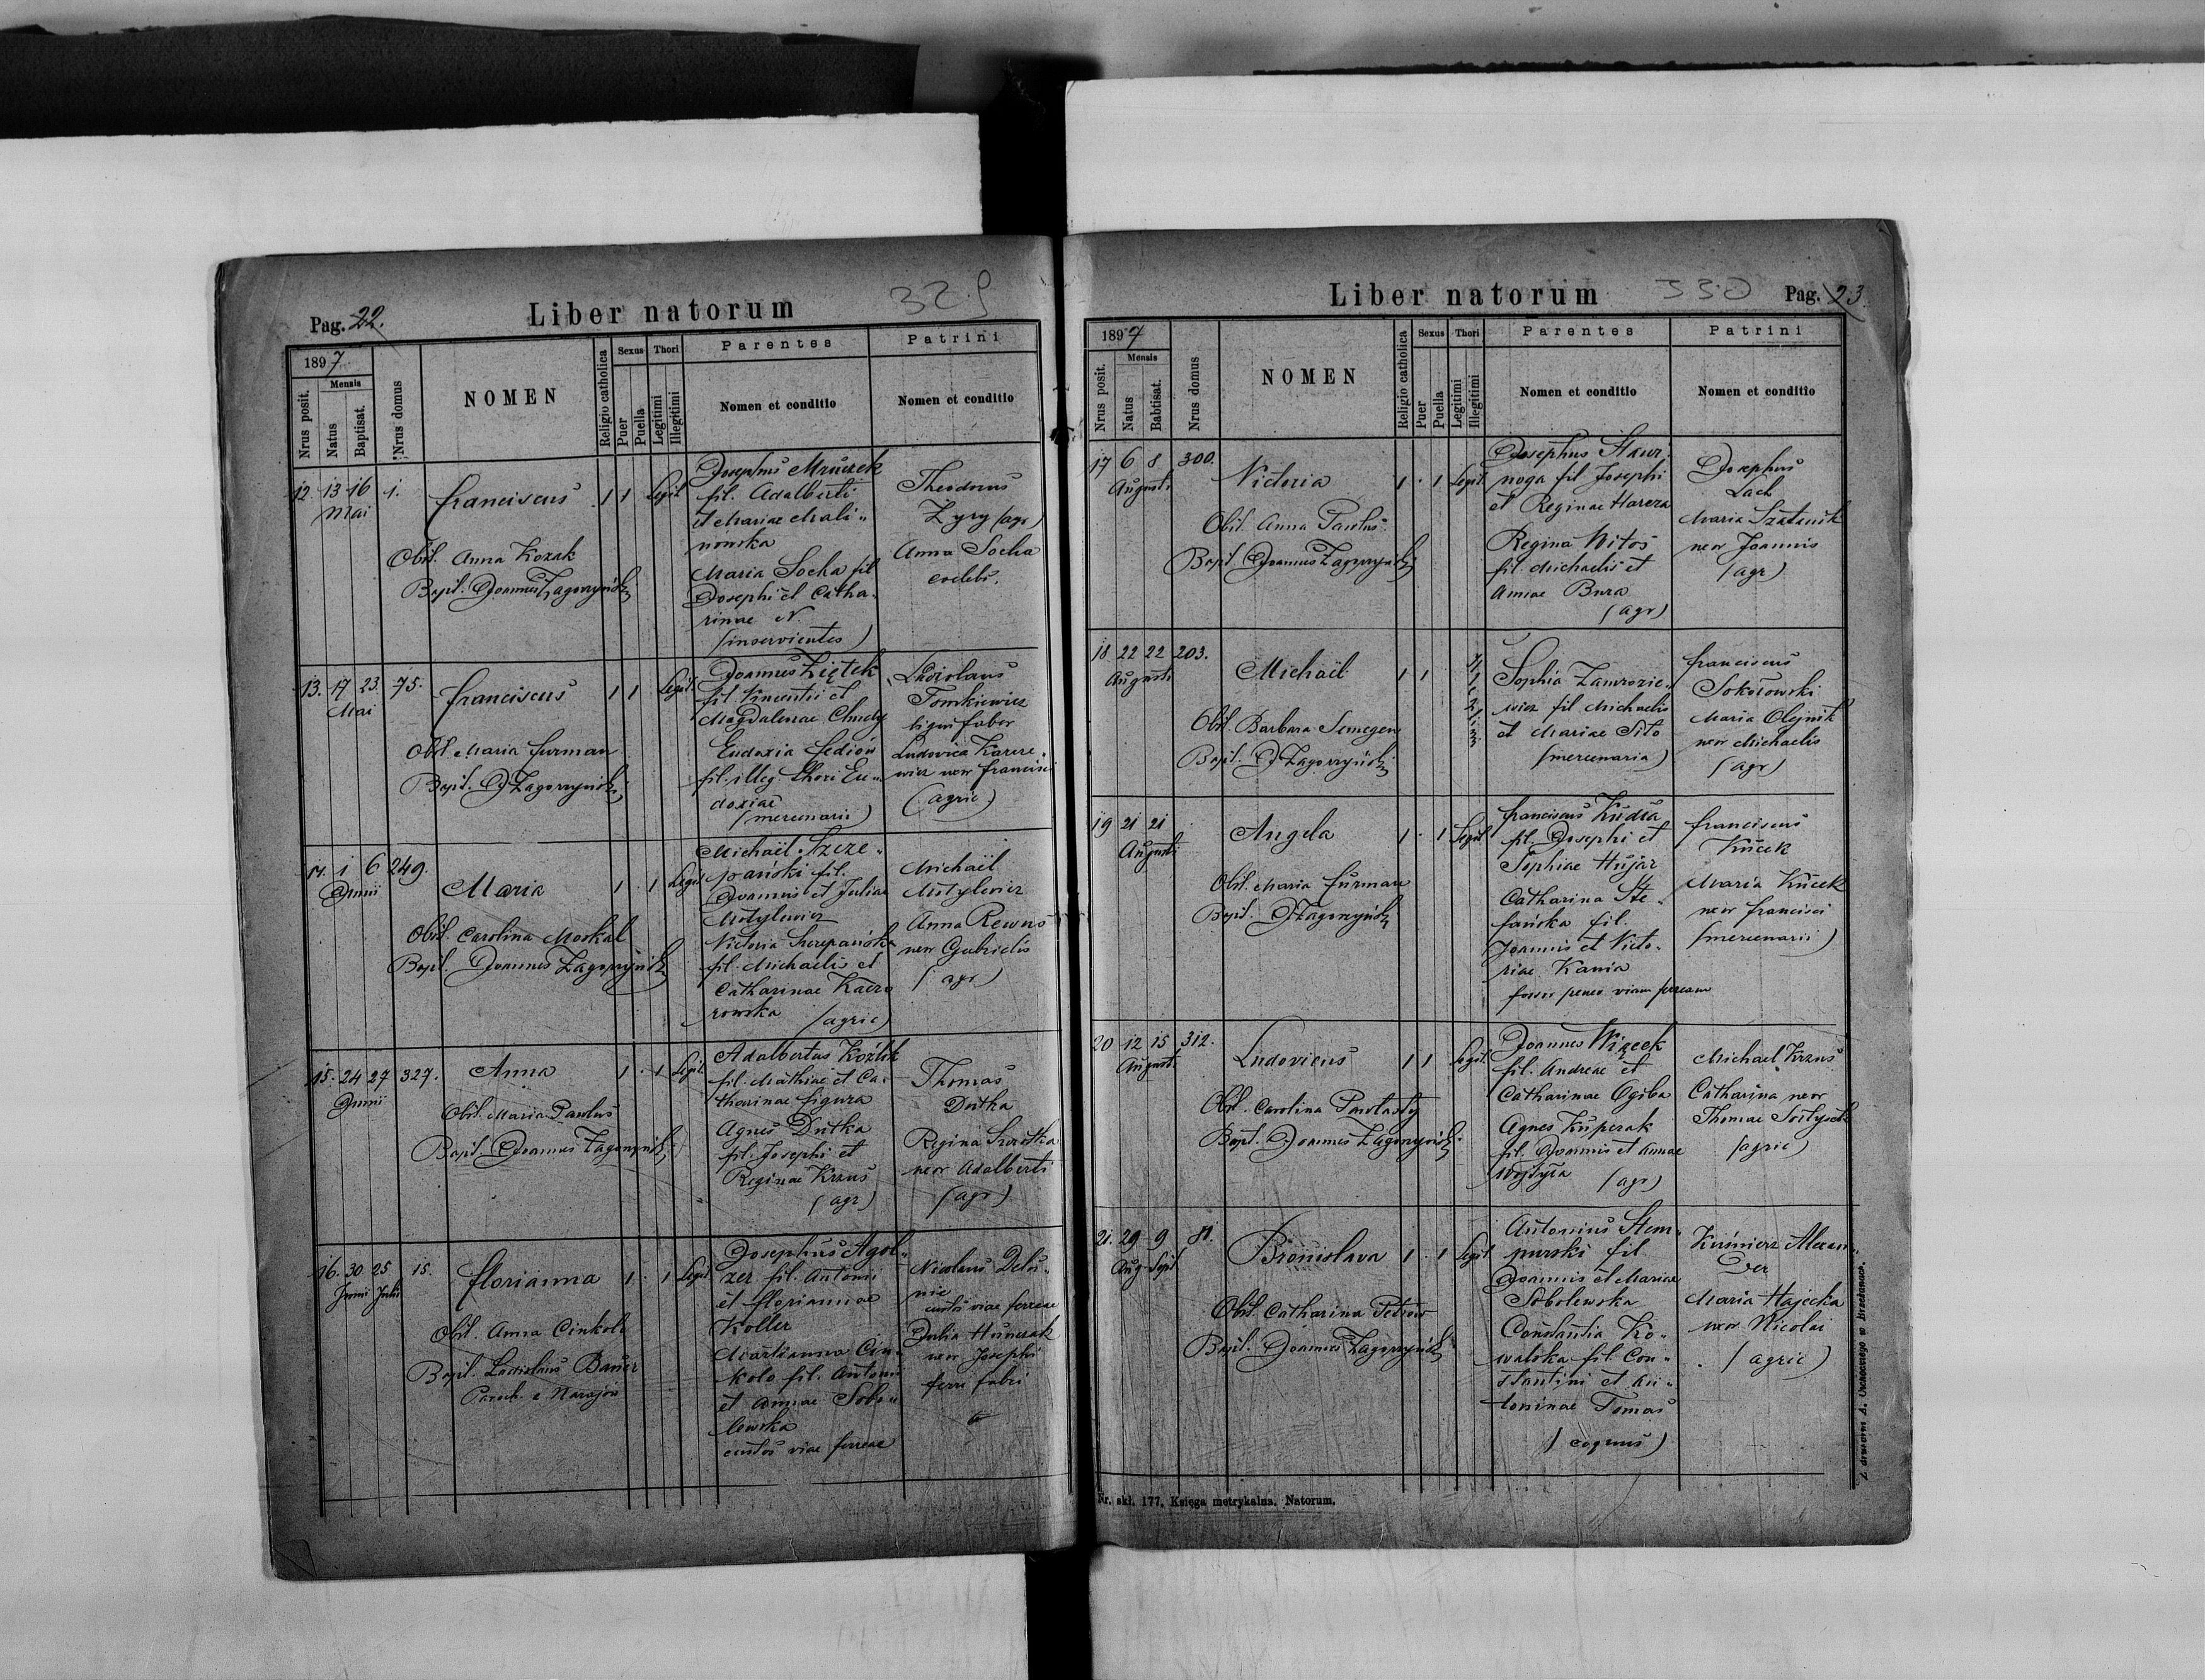 Pag. 22.
Liber natorum
329
1897
Nrus posit.
Mensis
Natus
Baptisat.
Nrus domus
NOMEN
Religio catholica
Sexus
Puer
Puella
Thori
Legitimi
Illegitimi
Parentes
Nomen et conditio
Patrini
Nomen et conditio
12. 13 16 1.
Mai
Franciscus 1 1 Legit
Obst. Anna Kozak
Bapt. Joannes Zagorzyński
Josephus Mruczek
fil. Adalberti
et Mariae Mali„
nowska
Maria Socha fil
Josephi et Catha„
rinae N.
(inservientes)
Theodorus
Zyry (agr)
Anna Socha
coelebs.
13. 17 23. 75.
Mai
Franciscus 1 1 Legit.
Obst. Maria Furman
Bapt. J Zagorzyński
Joannes Ziętek
fil Vincentii et
Magdalenae Chudy
Eudoxia Fediów
fil. illeg. thori Eu„
doxiae
(mercenarii)
Ladislaus
Tomkiewicz
lignifaber
Ludovica Karere„
wicz uxor Francisci
(agric)
14. 1 6 249.
Junii
Maria 1 . 1 Legit
Obst. Carolina Moskal
Bapt. Joannes Zagorzyński
Michaël Szcze„
pański fil.
Joannis et Juliae
Motylewicz
Victoria Szczepańska
fil. Michaelis et
Catharinae Kacz
rowska (agric)
Michaël
Motylewicz
Anna Rewus
uxor Gabrielis
(agr)
15. 24 27 327.
Junii
Anna 1 . 1 Legit
Obst. Maria Pawlus
Bapt. Joannes Zagorzyński
Adalbertus Koźlik
fil. Mathiae et Ca„
tharinae Figura
Agnes Dutka
fil. Josephi et
Reginae Krzus
(agr)
Thomas
Dutka
Regina Szwetka
uxor Adalberti
(agr)
16. 30 25 15.
Junii Julii
Florianna 1 . 1 Legit.
Obst. Anna Cinkolo
Bapt. Ladislaus Bauer
Paroch. e Narajów
Josephus Agol„
zer fil. Antonii
et Floriannae
Koller
Marianna Cin„
kolo fil. Antonii
et Annae Sobo„
lewska
custos viae ferreae
Nicolaus Delu„
nic
custos viae ferreae
Julia Huńczak
uxor Josephi
ferri fabri
Liber natorum
330
Pag. 23
1897
Nrus posit.
Mensis
Natus
Babtisat.
Nrus domus
NOMEN
Religio catholica
Sexus
Puer
Puella
Thori
Legitimi
Illegitimi
Parentes
Nomen et conditio
Patrini
Nomen et conditio
17 6 8 300.
Augusti
Victoria 1 . 1 Legit.
Obst. Anna Pawlus
Bapt. Joannes Zagorzyński
Josephus Stawi„
noga fil Josephi
et Reginae Hareza
Regina Witos
fil Michaelis et
Annae Bura
(agr)
Josephus
Lach
Maria Szatanik
uxor Joannis
(agr)
18 22 22 203.
Augusti
Michaël 1 1
Obst. Barbara Semegen
Bapt. J Zagorzyński
Sophia Zawrozie„
wicz fil Michaelis
et Mariae Sito
(mercenaria)
Franciscus
Sokołowski
Maria Olejnik
uxor Michaelis
(agr)
19 21 21
Augusti
Angela 1 . 1 Legit
Obst. Maria Furman
Bapt. J Zagorzyński
Franciscus Kudła
fil. Josephi et
Sophiae Hujar
Catharina Ste„
fańska fil.
Joannis et Victo„
riae Kania
viam ferream
Franciscus
Kucek
Maria Kucek
uxor Francisci
(mercenarii)
20 12 15 312.
Augusti
Ludovicus 1 1 Legit.
Obst. Carolina Pawlasty
Bapt. Joannes Zagorzyński
Joannes Wiącek
fil. Andreae et
Catharinae Ogiba
Agnes Kuperak
fil. Joannis et Annae
Wojtyła (agr)
Michael Krzus
Catharina uxor
Thomae Sołtysek
(agric)
21. 29 9 81.
Aug Sept
Bronislava 1 . 1 Legit
Obst. Catharina Petrów
Bapt. Joannes Zagorzyński
Antonius Stem„
purski fil
Joannis et Mariae
Sobolewska
Constantia Ko„
walska fil. Con„
stantini et An„
toninae Tomas
(coquus)
Kasimierz Alexan„
der
Maria Hajecka
uxor Nicolai
(agric)
Nr. skł. 177, Księga metrykalna. Natorum.